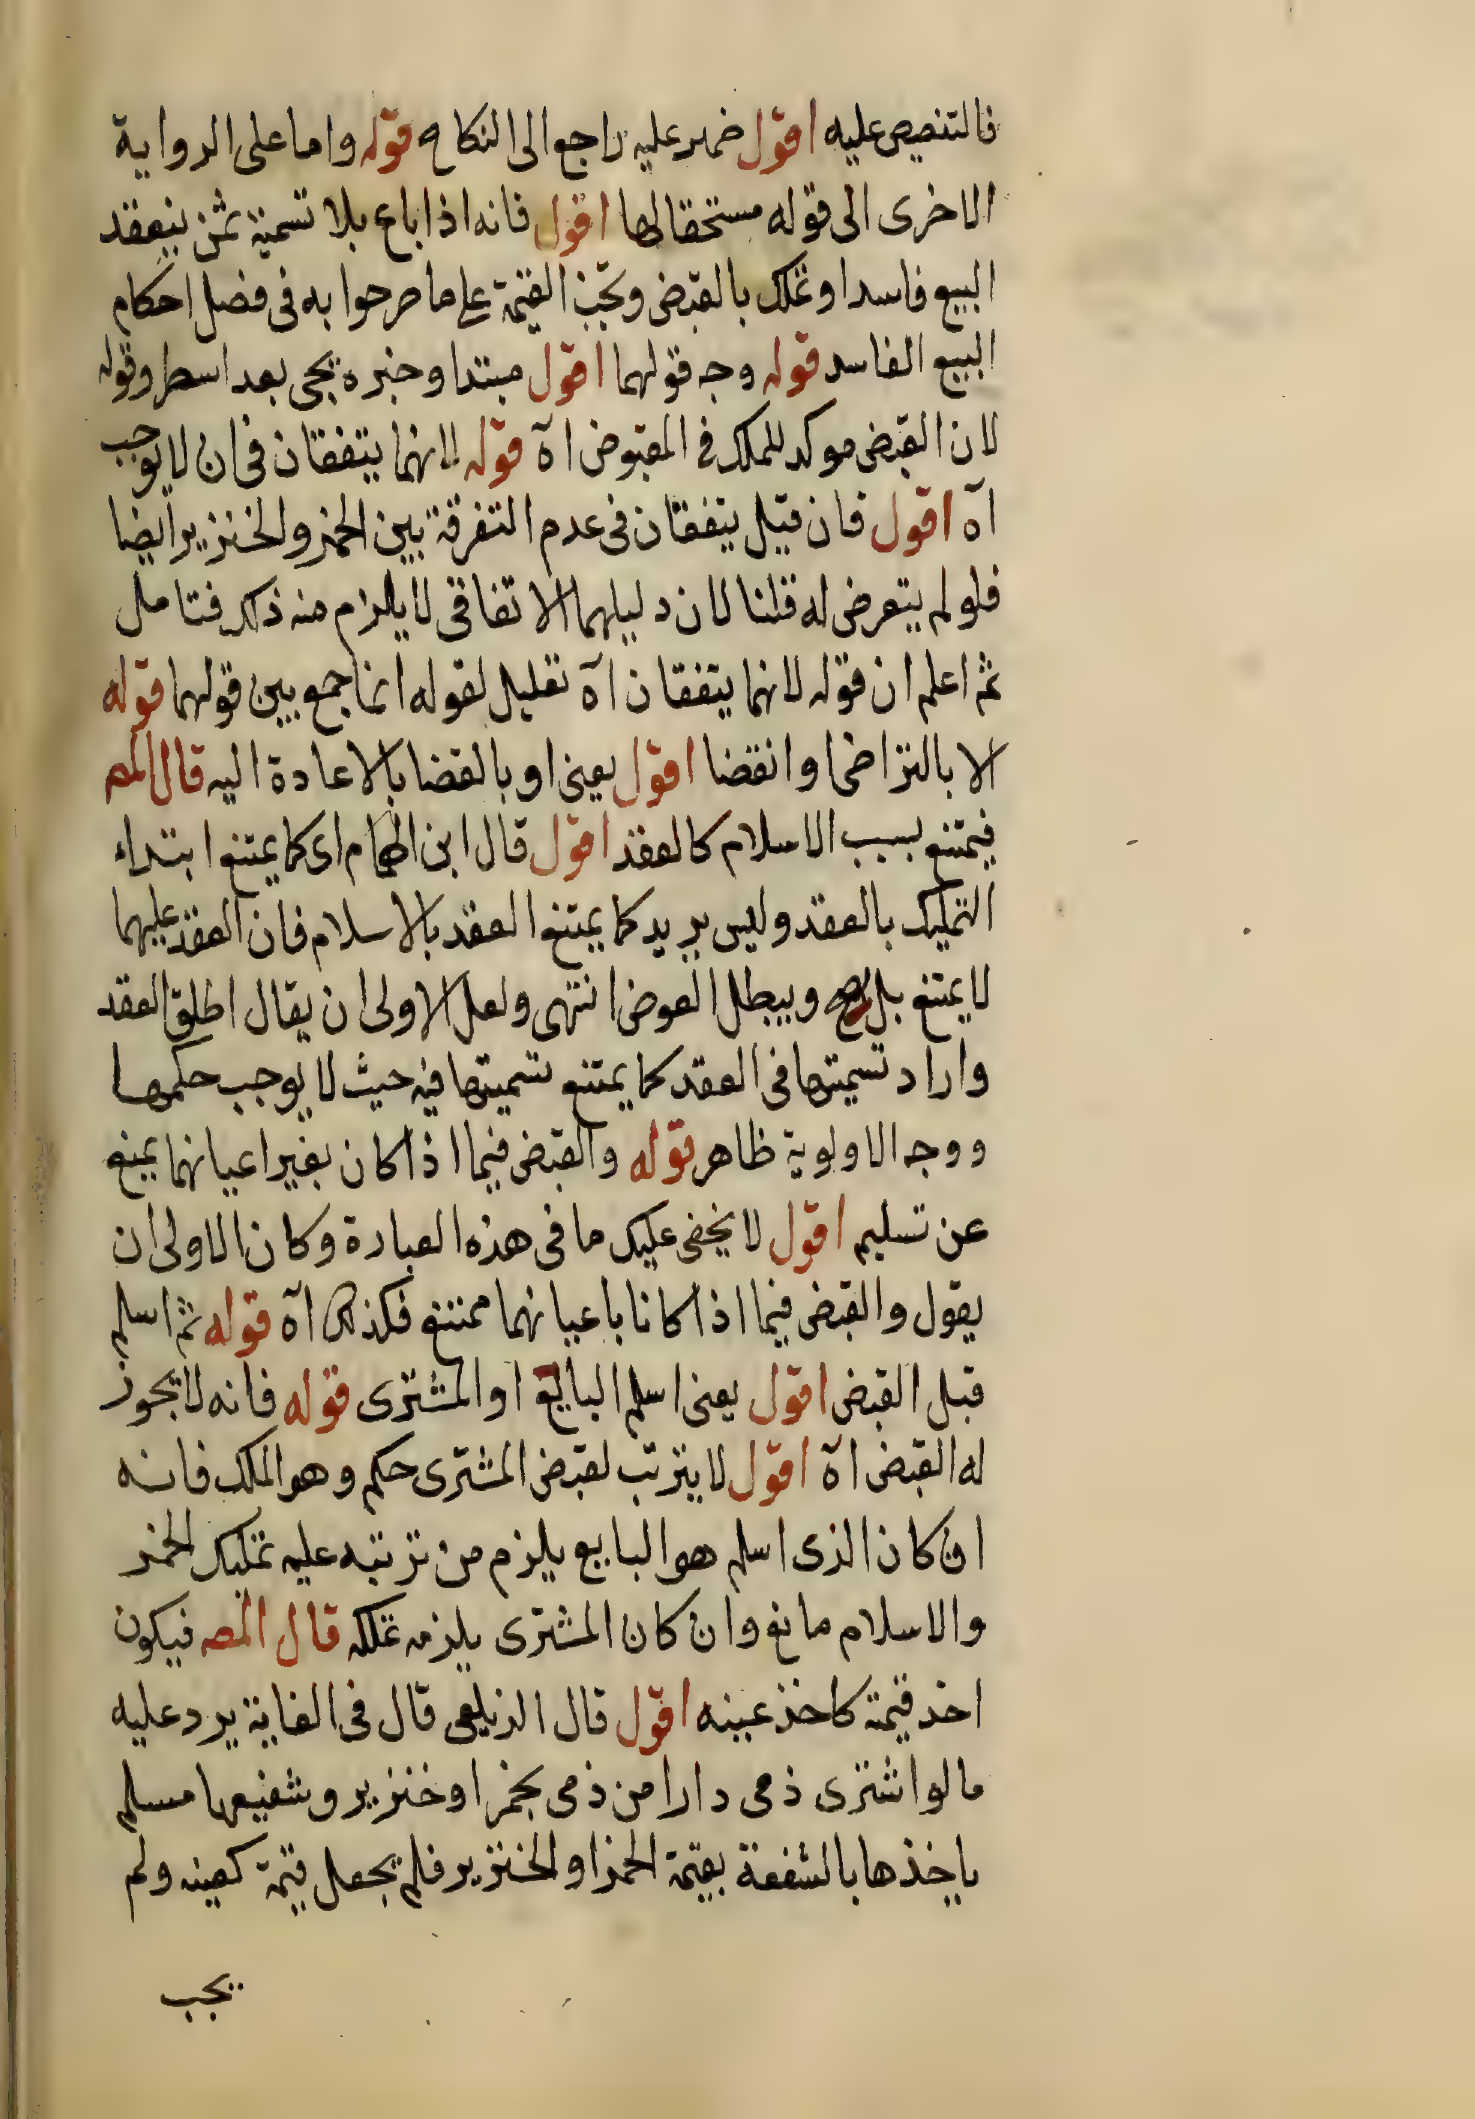 فالتنصيص عليه اقول ضمير عليه راجع الى النكاح قوله واما على الرواية
الاخرى الى قوله مستحقا لها اقول فانه اذا باع بلا تسمية ثمن ينعقد
البيع فاسدا وتملك بالقبض وتجب القيمة على ما صرحوا به في فصل احكام
البيع الفاسد قوله وجه قولهما اقول مبتدا وخبره يجى بعد اسطر وقوله
لان القبض موكد للملك فى المقبوض اه قوله لانهما يتفقان فى ان لا يوجب
اه اقول فان قيل يتفقان فى عدم التفرقة بين الخمر والخنزير ايضا
فلو لم يتعرض له قلنا لان دليلهما الاتفاقى لا يلزم منه ذكر فتامل
ثم اعلم ان قوله لانهما يتفقان اه تعليل لقوله انما جمع بين قولهما قوله
الا بالتراضى او انقضا اقول يعنى او بالقضا بالاعادة اليه قال المص
فيمتنع بسبب الاسلام كالعقد اقول قال ابن الهمام اى كما يمتنع ابتداء
التمليك بالعقد وليس يريد كما يمتنع العقد بالاسلام فان العقد عليهما
لا يمتنع بل يصح ويبطل العوض انتهى ولعل الاولى ان يقال اطلق العقد
واراد تسميتها فى العقد كما يمتنع تسميتها فيه حيث لا يوجب حكمها
ووجه الاولوية ظاهر قوله والقبض فيما اذا كان بغير اعيانهما يمنع
عن تسليم اقول لا يخفى عليك ما فى هذه العبارة وكان الاولى ان
يقول والقبض فيما اذا كانا باعيانهما ممتنع فكذلك اه قوله ثم اسلم
قبل القبض اقول يعنى اسلم البايع او المشترى قوله فانه لا يجوز
له القبض اه اقول لا يترتب لقبض المشترى حكم وهو الملك فانه
ان كان الذى اسلم هو البايع يلزم من ترتبه عليه تمليك الخمر
والاسلام مانع وان كان المشترى يلزمه تملكه قال المصه فيكون
اخذ قيمة كاخذ عينه اقول قال الزيلعى قال فى الغاية يرد عليه
ما لو اشترى ذمى دارا من ذمى بخمر او خنزير وشفيعها مسلم
ياخذها بالشفعة بقيمة الخمر او الخنزير فلم يجعل قيمة كعينه ولم
يجب